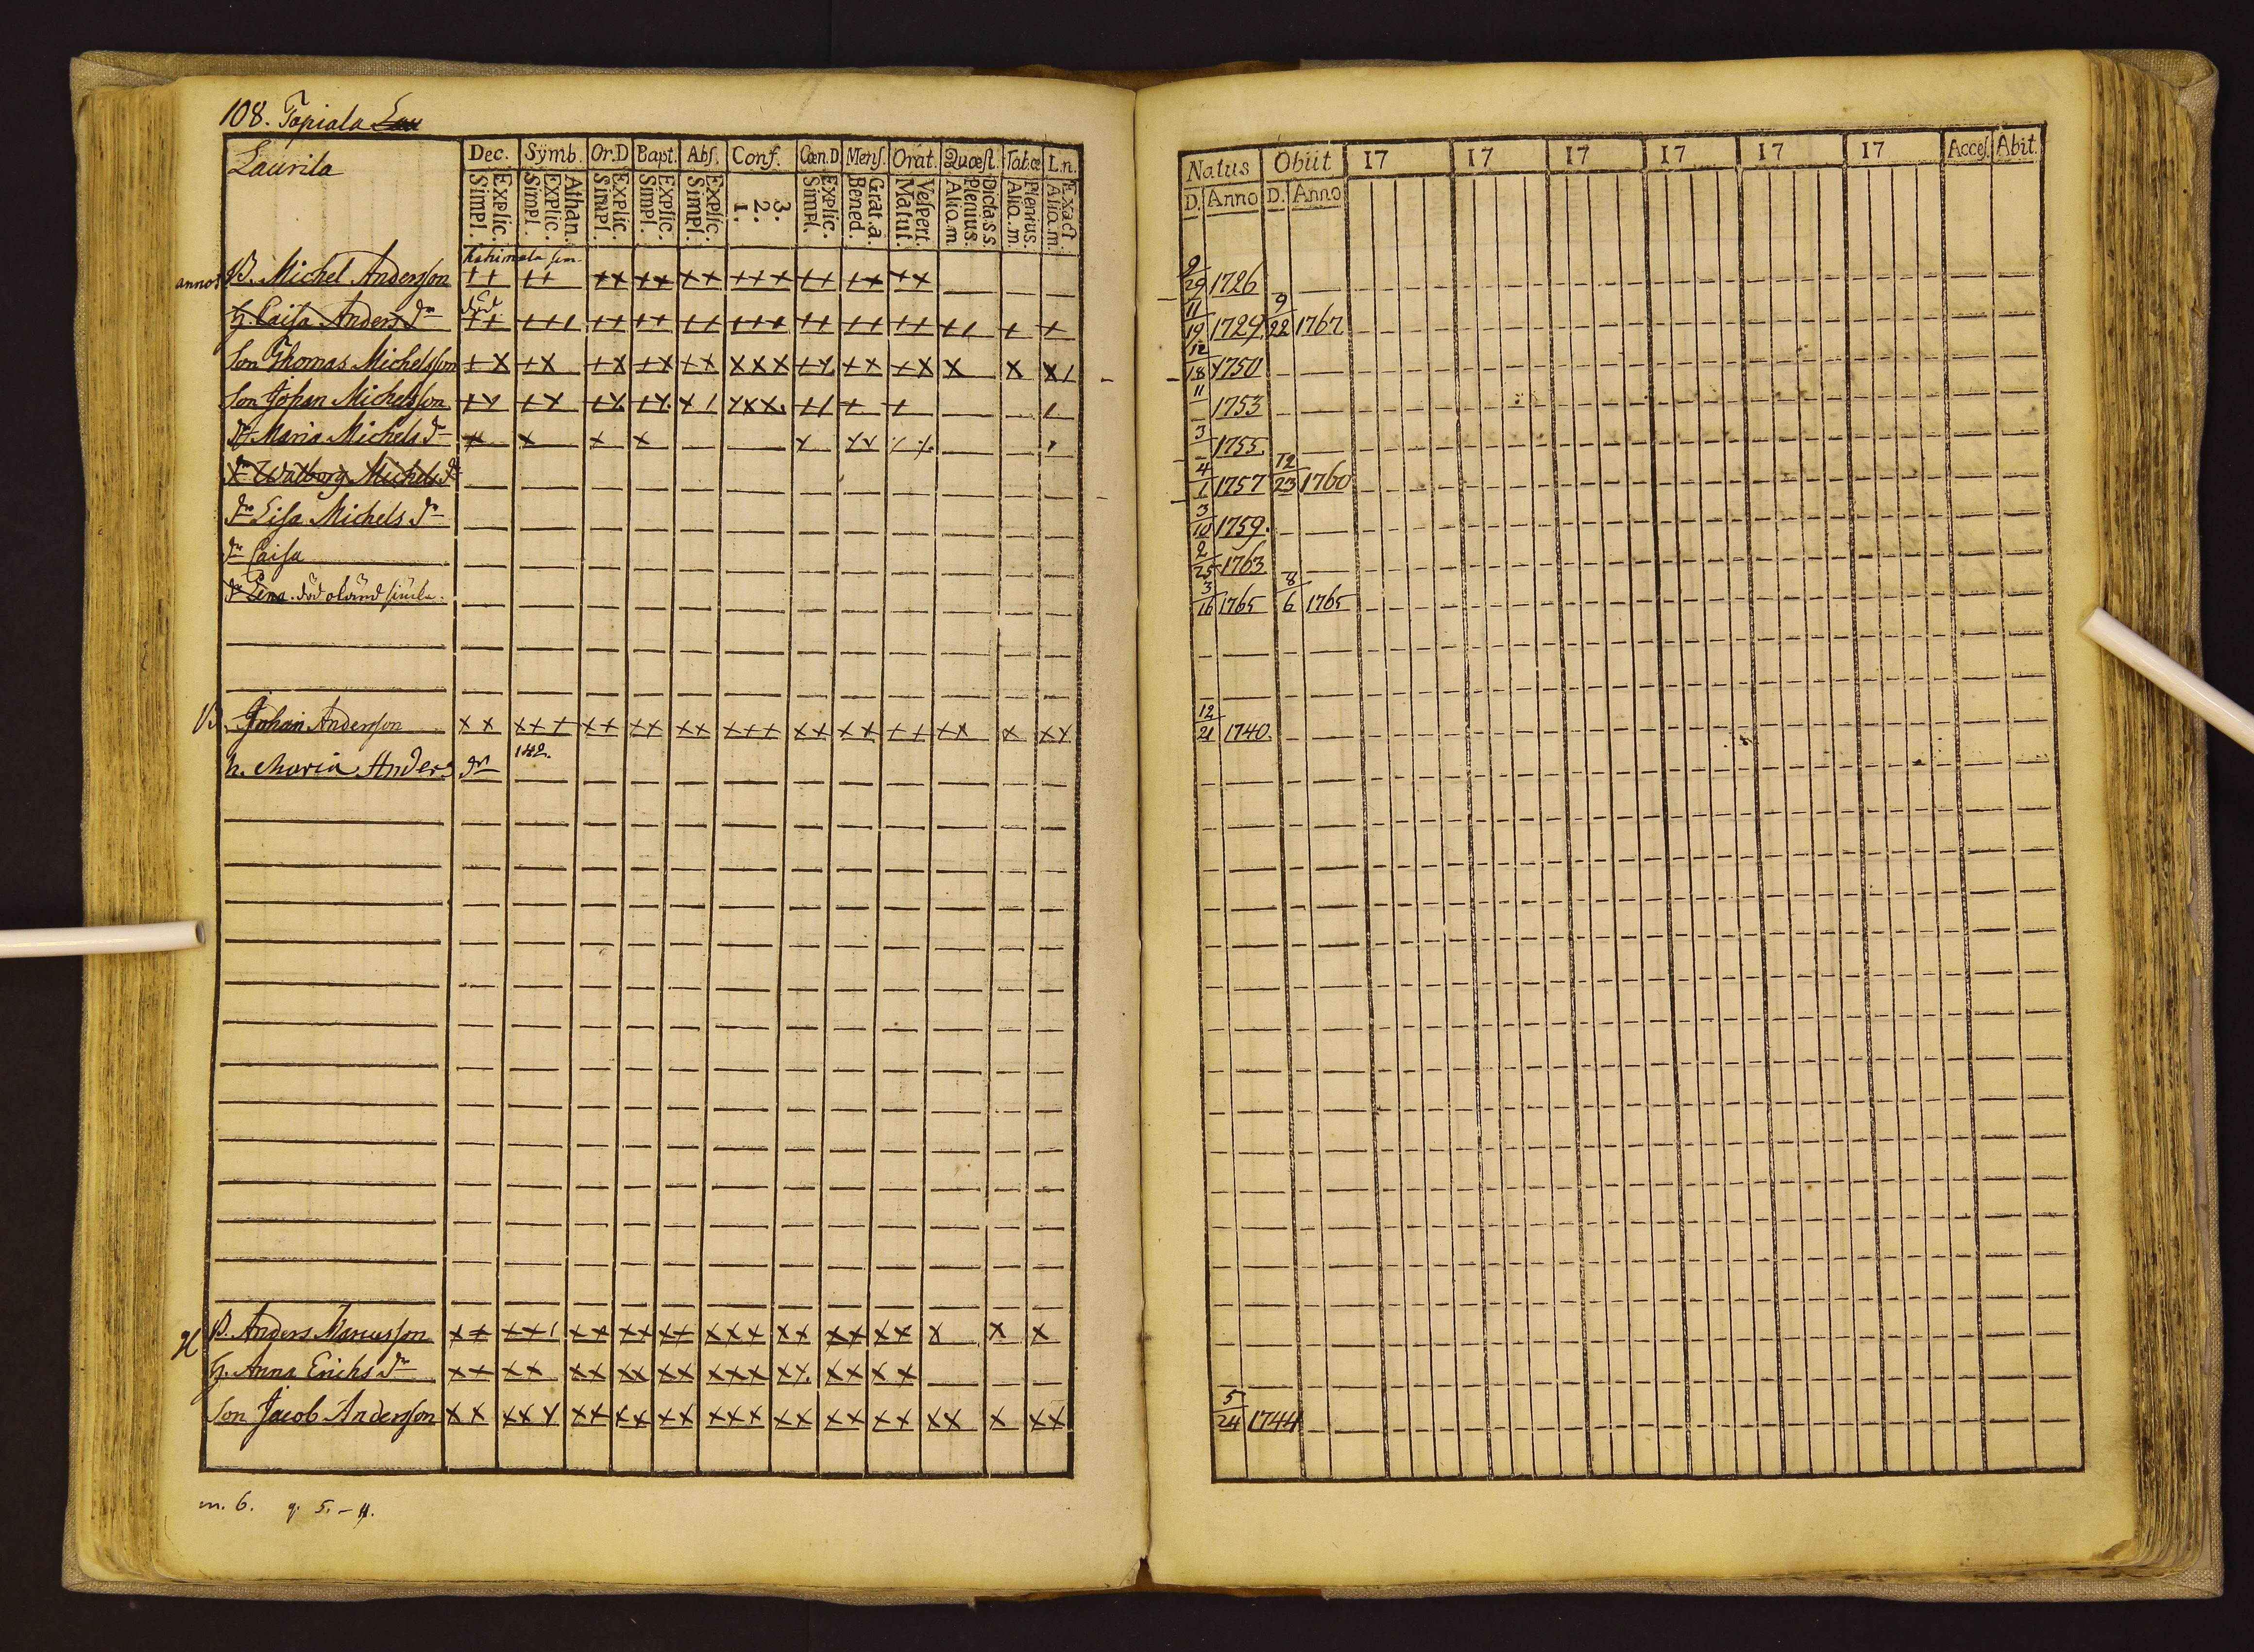 108. Tapiala Lau
Laurila
Dec. Symb. Or.D Bapt. Abſ. Conf. Cœn.D. Menſ. Orat. Quæſt. Tabæ L.n.
Explic. Simpl. Athan. Explic. Simpl. Explic. Simpl. Explic. Simpl. Explic. Simpl. 3. 2. 1. Explic. Simpl. Grat.a. Bened. Veſpert. Matut. Dicta.s.s. Plenius. Aliq.m. Plenius. Aliq.m. Exact. Aliq.m.
B. Michel Anderſson ++ ++ ++ ++ ++ +++ ++ ++ ++
död
H. Caisa Anders dr ++ +++ ++ ++ ++ +++ ++ ++ ++ ++ + +
Son Thomas Michelsſon +X +X +X +X +X XXX +X ++ +X X X X/
Son Johan Michelsſon
Dr Maria Michels dr
dr Walborg Michels dr
dr Lisa Michels dr
dr Caisa
dr Lena död
B. Johan Anderſson XX XX+ ++ ++ ++ +++ ++ ++ ++ ++ X XX
h. Maria Anders dr 142.
B. Anders Marcusſon
H. Anna Erichs dr
Son Jacob Anderſson
m. 6. q. 5. – 4.
Natus Obiit 17 17 17 17 17 17 Acceſ. Abit.
D. Anno D. Anno
9/29 1726
11/19 1729. 9/22 1767
12/18 1750
11 1753
3 1755
4/1 1757 12/23 1760
3/10 1759.
2/25 1763
3/16 1765 8/6 1765
12/21 1740.
5/24 1744